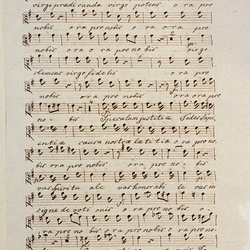 virgo prædicanda virgo potens o ra pro
nobis o ra pro nobis o ra o ra pro
nobis o ra o ra pro no bis virgo
clemens virgo fidelis o ra pro
nobis o ra pro nobis o ra pro
no bis Speculum justitiæ Sedes Sapi
entiæ causa nostræ lætitiæ o ra pro no
bis o ra pro nobis o ra pro no bis
vas spiritu ale vas honorabi le vas in
signe devoti onis o ra pro nobis
o ra pro no bis o ra pro no